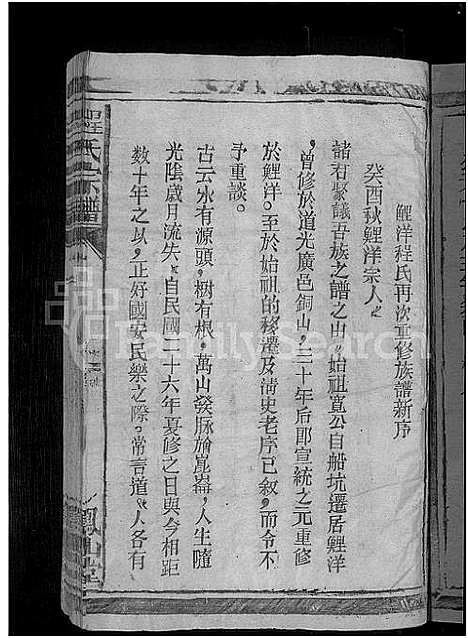 鯉洋程氏再次重修族譜新序
癸酉秋鯉洋宗人之
諸右聚議吾族之譜之山始祖寬公自船坑遷居鯉洋
,曾修於道光廣邑銅山,三十年后即宣統之元重修
於鯉洋。至於始祖的移遷及淸史老序已敘,而令不
予重談。
古云水有源頭,樹有根,萬山發脉崑崙,人生隨
光陰歲月流失,自民國二十六年夏修之日與今相距
数十年之以,正好國安民樂之際。常言道,人各有
程氏宗譜
FamilySearch